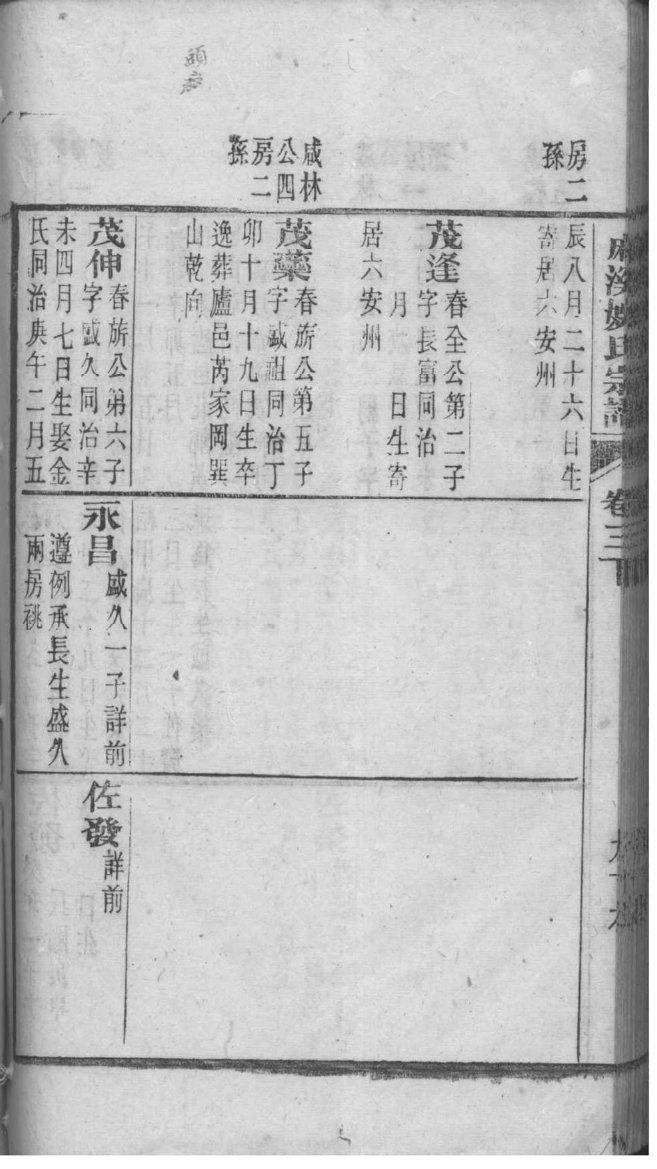 麻溪姚氏宗譜
卷三下
房二
孫
辰八月二十六日生
寄居六安州
茂逢春全公第二子
字長富同治
月　日生寄
居六安州
咸林
公四
房二
孫
茂藥春旂公第五子
字盛祖同治丁
卯十月十九日生卒
逸葬廬邑芮家岡巽
山乾向
茂伸春旂公第六子
字盛久同治辛
未四月七日生娶金
氏同治庚午二月五
永昌盛久一子詳前
遵例承長生盛久
兩房祧
佐發詳前